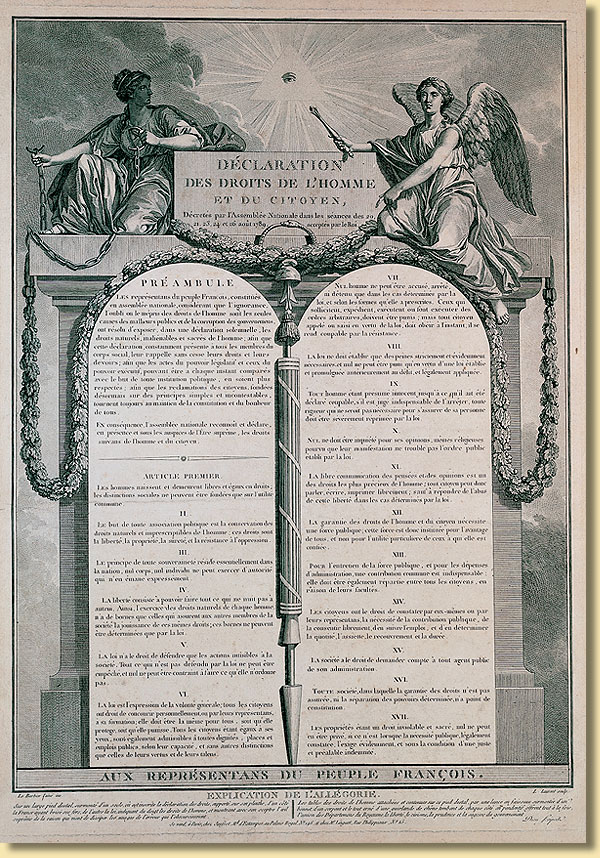 DÉCLARATION
DES DROITS DE L'HOMME
ET DU CITOYEN,
Décretés par l'Assemblée Nationale dans les séances des 20,
21, 23, 24 et 26 août 1789, acceptés par le Roi
PRÉAMBULE
LES représentans du peuple François, constitués
en assemblée nationale, considérant que l'ignorance,
l'oubli ou le mépris des droits de l'homme sont les seules
causes des malheurs publics et de la corruption des gouvernemens,
ont résolu d'exposer, dans une déclaration solemnelle, les
droits naturels, inaliénables et sacrés de l'homme; afin que
cette déclaration, constamment présente à tous les membres du
corps social, leur rappelle sans cesse leurs droits et leurs
devoirs; afin que les actes du pouvoir législatif et ceux du
pouvoir exécutif, pouvant être à chaque instant comparés
avec le but de toute institution politique, en soient plus
respectés; afin que les reclamations des citoyens, fondées
désormais sur des principes simples et incontestables,
tournent toujours au maintien de la constitution et du bonheur
de tous.
EN conséquence, l'assemblée nationale reconnoit et déclare,
en présence et sous les auspices de l'Etre suprême, les droits
suivans de l'homme et du citoyen.
ARTICLE PREMIER.
LES hommes naissent et demeurent libres et égaux en droits,
les distinctions sociales ne peuvent être fondées que sur l'utilité
commune.
II.
LE but de toute association politique est la conservation des
droits naturels et imprescriptibles de l'homme; ces droits sont
la liberté, la propriété, la sureté, et la résistance à l'oppression.
III.
LE principe de toute souveraineté réside essentiellement dans
la nation, nul corps, nul individu ne peut exercer d'autorité
qui n'en émane expressément.
IV.
LA liberté consiste à pouvoir faire tout ce qui ne nuit pas à
autrui. Ainsi, l'exercice des droits naturels de chaque homme
n'a de bornes que celles qui assurent aux autres membres de la
société la jouissance de ces mêmes droits; ces bornes ne peuvent
être déterminées que par la loi.
V.
LA loi n'a le droit de défendre que les actions nuisibles à la
société. Tout ce qui n'est pas défendu par la loi ne peut être
empêché, et nul ne peut être contraint à faire ce qu'elle n'ordonne
pas.
VI.
LA loi est l'expression de la volonté générale; tous les citoyens
ont droit de concourir personnellement, ou par leurs représentans,
à sa formation; elle doit être la même pour tous, soit qu'elle
protege, soit qu'elle punisse. Tous les citoyens étant égaux à ses
yeux, sont également admissibles à toutes dignités, places et
emplois publics, selon leur capacité, et sans autres distinctions
que celles de leurs vertus et de leurs talens.
VII.
NUL homme ne peut être accusé, arreté,
ni détenu que dans les cas déterminés par la
loi, et selon les formes qu'elle a prescrites. Ceux qui
sollicitent, expédient, exécutent ou font exécuter des
ordres arbitraires, doivent être punis; mais tout citoyen
appelé ou saisi en vertu de la loi, doit obéir à l'instant, il se
rend coupable par la résistance.
VIII.
LA loi ne doit établir que des peines strictement et évidemment
nécessaires, et nul ne peut être puni qu'en vertu d'une loi établie
et promulguée antérieurement au délit, et légalement appliquée.
IX.
TOUT homme étant présumé innocent jusqu'à ce qu'il ait été
déclaré coupable, s'il est jugé indispensable de l'arrêter, toute
rigueur qui ne seroit pas nécessaire pour s'assurer de sa personne
doit être sévèrement réprimée par la loi.
X.
NUL ne doit être inquiété pour ses opinions, mêmes religieuses
pourvu que leur manifestation ne trouble pas l'ordre public
établi par la loi.
XI.
LA libre communication des pensées et des opinions est un
des droits les plus précieux de l'homme; tout citoyen peut donc
parler, écrire, imprimer librement; sauf à répondre de l'abus
de cette liberté dans les cas déterminés par la loi.
XII.
LA garantie des droits de l'homme et du citoyen nécessite
une force publique; cette force est donc instituée pour l'avantage
de tous, et non pour l'utilité particuliere de ceux à qui elle est
confiée.
XIII.
POUR l'entretien de la force publique, et pour les dépenses
d'administration, une contribution commune est indispensable;
elle doit être également répartie entre tous les citoyens, en
raison de leurs facultés.
XIV.
LES citoyens ont le droit de constater par eux-mêmes ou par
leurs représentans, la nécessité de la contribution publique, de
la consentir librement, d'en suivre l'emploi, et d'en déterminer
la quotité, l'assiette, le recouvrement et la durée.
XV.
LA société a le droit de demander compte à tout agent public
de son administration.
XVI.
TOUTE société, dans laquelle la garantie des droits n'est pas
assurée, ni la séparation des pouvoirs déterminée, n'a point de
constitution.
XVII.
LES propriétés étant un droit inviolable et sacré, nul ne peut
en être privé, si ce n'est lorsque la nécessité publique, légalement
constatée, l'exige évidemment, et sous la condition d'une juste
et préalable indemnité.
AUX REPRÉSENTANS DU PEUPLE FRANÇOIS.
Le Barbier
L. Laurent sculp.
EXPLICATION DE L'ALLÉGORIE.